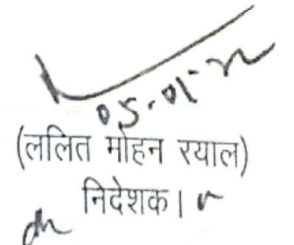 05-01-22
(ललित मोहन रयाल)
निदेशक।